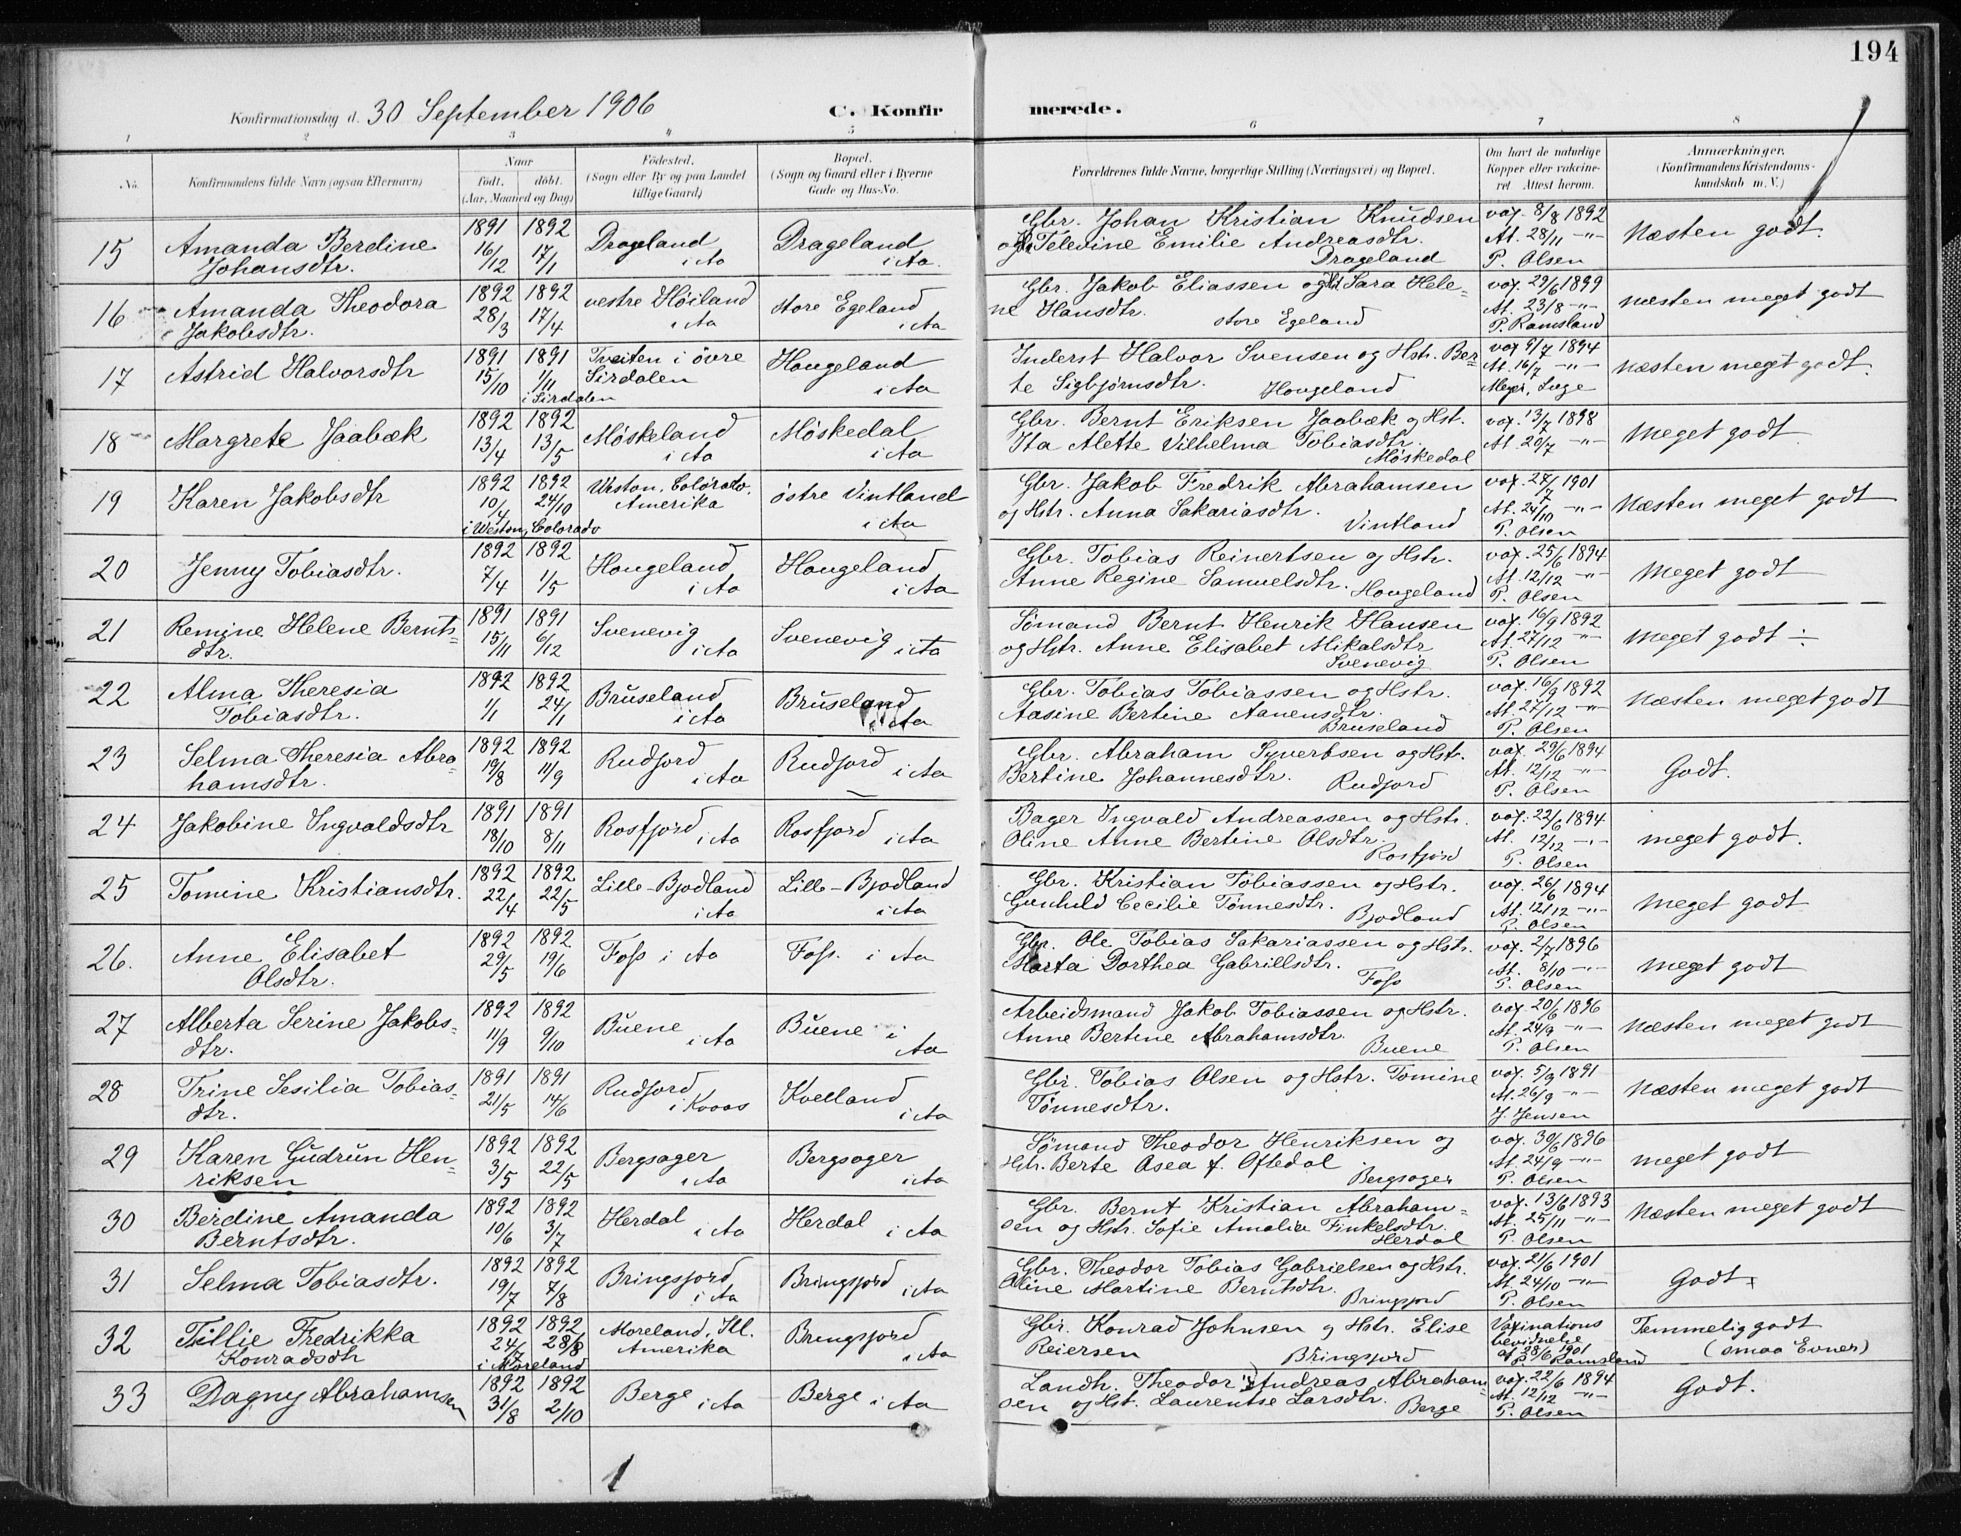 194
Konfirmationsdag d. 30 September 1906 C. Konfirmerede.
1 2 3 4 5 6 7 8
No. Konfirmandens fulde Navn (ogsaa Efternavn) Naar født. døbt. (Aar, Maaned og Dag) Fødested. (Sogn eller By og paa Landet tillige Gaard) Bopæl. (Sogn og Gaard eller i Byerne Gade og Hus-No. Forældrenes fulde Navne, borgerlige Stilling (Næringsvei) og Bopæl. Om havt de naturlige Kopper eller vakcineret. Attest herom. Anmærkninger. (Konfirmandens Kristendomskundskab m. V.)
15 Amanda Berdine Johansdtr. 1891 16/12 1892 17/1 Drageland i Aa Drageland i Aa. Gbr. Johan Kristian Knudsen og H. Televine Emilie Andreasdtr. Drageland vax. 8/8 1892 At. 28/11 -"- P. Olsen Næsten godt.
16 Amanda Theodora Jakobsdtr. 1892 28/3 1892 17/4 vestre Høiland i Aa store Egeland i Aa Gbr. Jakob Eliassen og H. Sara Helene Hansdtr. store Egeland vax. 29/6 1899 At. 23/8 -"- P. Ramsland næsten meget godt
17 Astrid Halvorsdtr 1891 15/10 1891 1/11 i Sirdalen Tveiten i øvre Sirdalen Hougeland i Aa Inderst Halvor Svensen og Hstr. Berte Sigbjørnsdtr. Hougeland vax 9/7 1894 At. 16/7 -"- Meyer, Læge næsten meget godt.
18 Margrete Jaabæk 1892 13/4 1892 13/5 Møskeland i Aa Møskedal i Aa Gbr. Bernt Eriksen Jaabæk og Hst. Ita Alette Vilhelma Tobiasdtr. Møskedal vax. 13/7 1898 At. 20/7 -"- Meget godt.
19 Karen Jakobsdtr 1892 10/4 1892 24/10 i Weston, Colorado Weston, Colorado, Amerika østre Vintland i Aa Gbr. Jakob Fredrik Abrahamsen og Hstr. Anna Sakariasdtr. Vintland vax. 27/7 1901 At. 24/10 -"- P. Olsen Næsten meget godt
20 Jenny Tobiasdtr. 1892 7/4 1892 1/5 Hougeland i Aa Hougeland i Aa Gbr. Tobias Reinertsen og Hstr. Anne Regine Samuelsdtr. Hougeland vax. 25/6 1894 At. 12/12 -"- P. Olsen Meget godt
21 Remine Helene Berntsdtr. 1891 15/11 1891 6/12 Svenevig i Aa Svenevig i Aa Sømand Bernt Henrik Hansen og Hstr. Anne Elisabet Mikalsdtr Svenevig vax. 16/9 1892 At. 27/12 -"- P. Olsen Meget godt ÷
22 Alma Theresia Tobiasdtr. 1892 1/1 1892 24/1 Bruseland i Aa Bruseland i Aa Gbr. Tobias Tobiassen og Hstr. Aasine Bertine Aanensdtr. Bruseland vax. 16/9 1892 At. 27/12 -"- P. Olsen Næsten meget godt
23 Selma Theresia Abrahamsdtr. 1892 19/8 1892 11/9 Rudfjord i Aa Rudfjord i Aa Gbr. Abraham Syvertsen og Hst. Bertine Johannesdtr. Rudfjord vax 29/6 1894 At. 12/12 -"- P. Olsen Godt.
24 Jakobine Ingvaldsdtr 1891 18/10 1891 8/11 Rosfjord i Aa Rosfjord i Aa Bager Ingvald Andreassen og Hstr. Oline Anne Bertine Olsdtr. Rosfjord vax. 22/6 1894 At. 12/12 -"- P. Olsen meget godt.
25 Tomine Kristiansdtr. 1892 22/4 1892 22/5 Lille-Bjodland i Aa Lille-Bjodland i Aa Gbr. Kristian Tobiassen og Hstr. Gunhild Cecilie Tønnesdtr. Bjodland vax. 26/6 1894 At. 12/12 -"- P. Olsen Meget godt
26. Anne Elisabet Olsdtr. 1892 29/5 1892 19/6 Foss i Aa Foss. i Aa Gbr. Ole Tobias Sakariassen og Hstr. Marta Dorthea Gabrillsdtr. Foss vax. 2/7 1896 At. 8/10 -"- P. Olsen Meget godt
27 Alberta Serine Jakobsdtr. 1892 11/9 1892 9/10 Buene i Aa Buene i Aa Arbeidsmand Jakob Tobiassen og Hstr. Anne Bertine Abrahamsdtr. Buene vax. 20/6 1896 At. 24/9 -"- P. Olsen Næsten meget godt
28 Trine Sesilia Tobiasdtr. 1891 21/5 1891 14/6 Rudfjord i Kvaas Kvelland i Aa Gbr. Tobias Olsen og Hstr. Tomine Tønnesdtr. vax. 5/9 1891 At. 26/9 -"- J. Jensen Næsten meget godt
29 Karen Gudrun Henriksen 1892 3/5 1892 22/5 Bergsager i Aa Bergsager i Aa Sømand Theodor Henriksen og Hstr. Berte Asea f. Oftedal Bergsager vax. 30/6 1896 At. 24/9 -"- P. Olsen meget godt
30 Berdine Amanda Berntsdtr. 1892 10/6 1892 3/7 Herdal i Aa Herdal i Aa Gbr. Bernt Kristian Abrahamsen og Hstr. Sofie Amalia Finkelsdtr. Herdal vax. 13/6 1893 At. 25/11 -"- P. Olsen Næsten meget godt
31 Selma Tobiasdtr. 1892 19/7 1892 7/8 Bringsfjord i Aa Bringsfjord i Aa Gbr. Theodor Tobias Gabrielsen og Hstr. Oline Martine Berntsdtr. Bringsfjord vax. 21/6 1901 At. 24/10 -"- P. Olsen Godt
32 Tillie Fredrikka Konradsdtr 1892 24/7 1892 28/8 i Moreland Moreland, Ill. Amerika Bringsfjord i Aa Gbr. Konrad Johnsen og Hstr. Elise Reiersen Bringsfjord Vaxinations bevidnelse af 28/6 1901 P. Ramsland Temmelig godt (smaa Evner)
33 Dagny Abrahamsen 1892 31/8 1892 2/10 Berge i Aa Berge i Aa Landh. Theodor Andreas Abrahamsen og Hst. Laurentse Larsdtr. Berge vax. 22/6 1894 At. 12/12 -"- P. Olsen Godt.